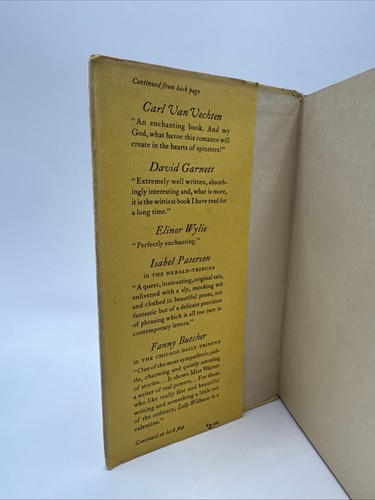 Continued from back page
Carl Van Vechten
"An enchanting book. And my
God, what havoc this romance will
create in the hearts of spinsters!"
David Garnett
"Extremely well written, absorb-
ingly interesting and, what is more,
it is the wittiest book I have read for
a long time."
Elinor Wylie
"Perfectly enchanting."
Isabel Paterson
in THE HERALD-TRIBUNE
"A queer, insinuating, original tale,
enlivened with a sly, mocking wit
and clothed in beautiful prose, not
fantastic but of a delicate precision
of phrasing which is all too rare in
contemporary letters."
Fanny Butcher
in THE CHICAGO DAILY TRIBUNE
"One of the most sympathetic, sub-
tle, charming and quietly amusing
of stories... It shows Miss Warner
a writer of real powers... For those
who like really fine and beautiful
writing and something a little out
of the ordinary, Lolly Willowes is a
valentine."
Continued on back flap
$2.00